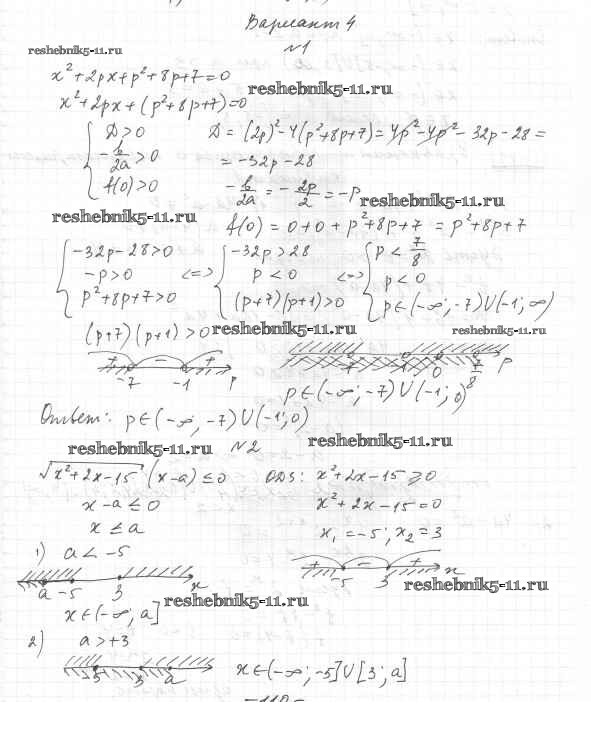 Вариант 4
reshebnik5-11.ru
№1
x² + 2px + p² + 8p + 7 = 0
reshebnik5-11.ru
x² + 2px + (p² + 8p + 7) = 0
{ D > 0   D = (2p)² - 4(p² + 8p + 7) = 4p² - 4p² - 32p - 28 =
-b/2a > 0   = -32p - 28
f(0) > 0   -b/2a = -2p/2 = -p
reshebnik5-11.ru
reshebnik5-11.ru
f(0) = 0 + 0 + p² + 8p + 7 = p² + 8p + 7
{ -32p - 28 > 0   { -32p > 28   { p < 7/8
-p > 0   <=>   p < 0   <=>   p < 0
p² + 8p + 7 > 0   (p+7)(p+1) > 0   p ∈ (-∞; -7) ∪ (-1; ∞)
(p+7)(p+1) > 0
reshebnik5-11.ru
reshebnik5-11.ru
+ - +
-7 -1 p
-7 -1 0 7/8 p
p ∈ (-∞; -7) ∪ (-1; 0)
Ответ: p ∈ (-∞; -7) ∪ (-1; 0)
reshebnik5-11.ru
№2
reshebnik5-11.ru
√x² + 2x - 15 (x - a) ≤ 0   ODS: x² + 2x - 15 ≥ 0
x - a ≤ 0   x² + 2x - 15 = 0
x ≤ a   x₁ = -5; x₂ = 3
1) a < -5
+ - +
-5 3 x
a -5 3 x
reshebnik5-11.ru
reshebnik5-11.ru
x ∈ (-∞; a]
2) a > +3
3 a   x ∈ (-∞; -5] ∪ [3; a]